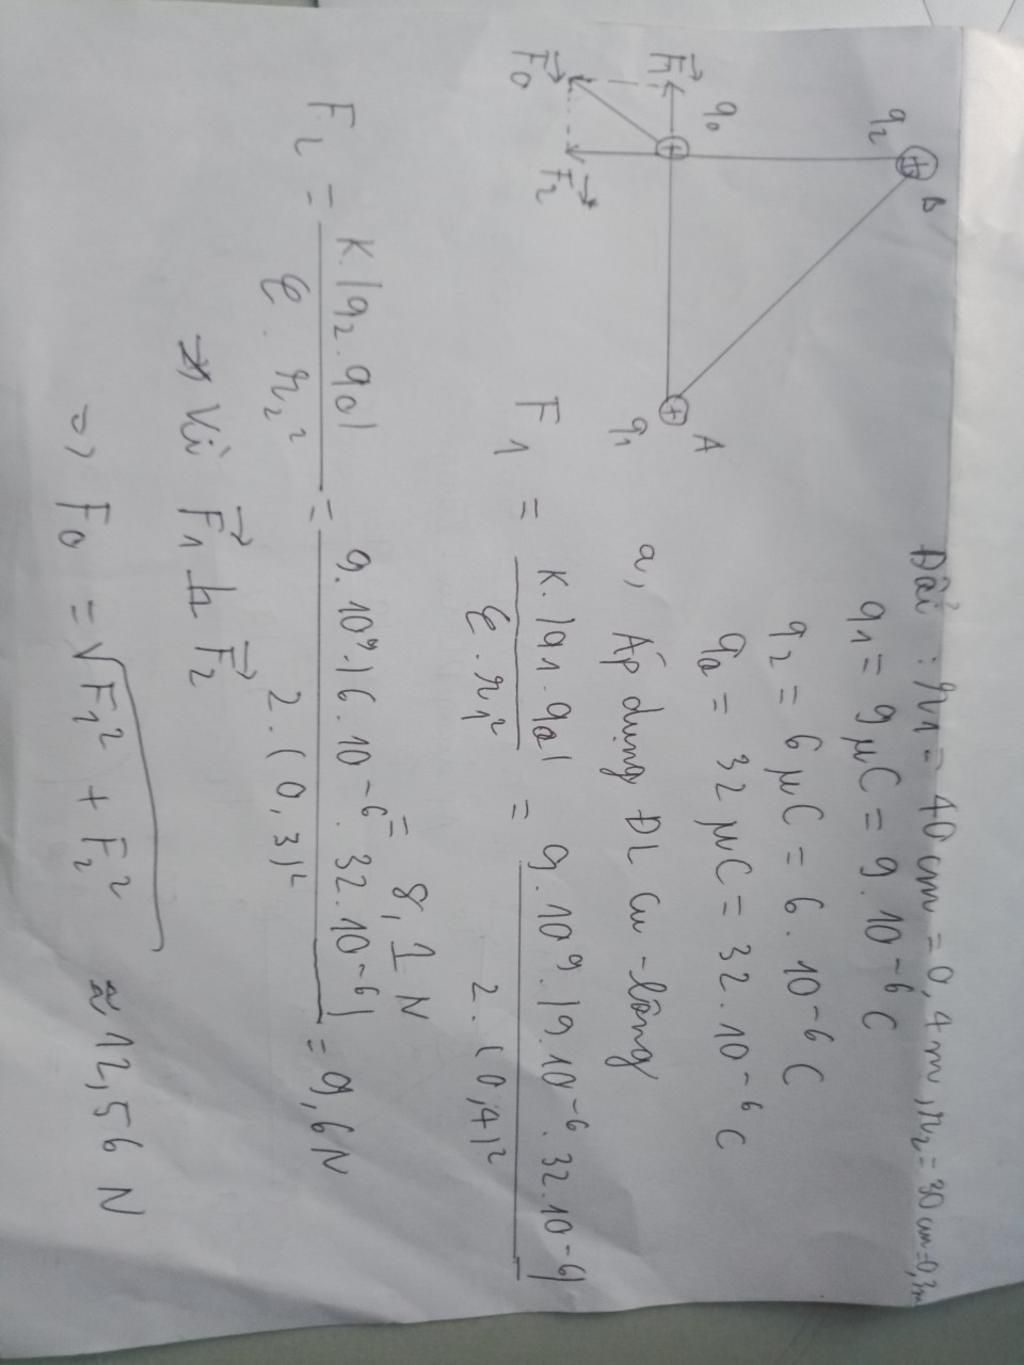 Đổi : r₁ = 40 cm = 0,4 m, r₂ = 30 cm = 0,3m
q₁ = 9 μC = 9 . 10⁻⁶ C
q₂ = 6 μC = 6 . 10⁻⁶ C
q₀ = 32 μC = 32 . 10⁻⁶ C
B
q₂
q₀
F₁
F₀
F₂
A
q₁
a, Áp dụng ĐL Cu-lông
F₁ = K.|q₁.q₀| / ε.r₁² = 9.10⁹.|9.10⁻⁶.32.10⁻⁶| / 2.(0,4)²
= 8,1 N
F₂ = K.|q₂.q₀| / ε.r₂² = 9.10⁹.|6.10⁻⁶.32.10⁻⁶| / 2.(0,3)² = 9,6N
Vì F₁ ⊥ F₂
=> F₀ = √F₁² + F₂² ≈ 12,56 N